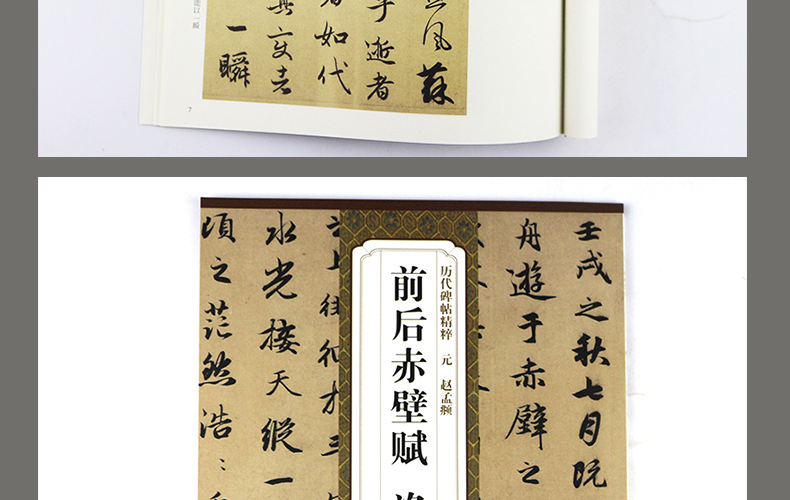 風蘇
乎逝者
者如代
一瞬
能以一瞬
7
壬戌之秋七月既
舟遊于赤壁之
历代碑帖精粹 元 赵孟頫
前后赤壁赋
之上徘徊
水光接天縱一
頃之茫然浩